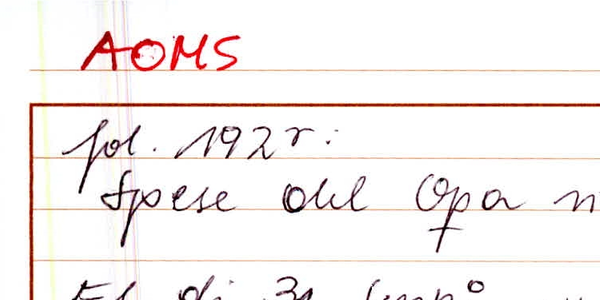 AOMS
fol. 192r:
Spese del Opa
El di 31